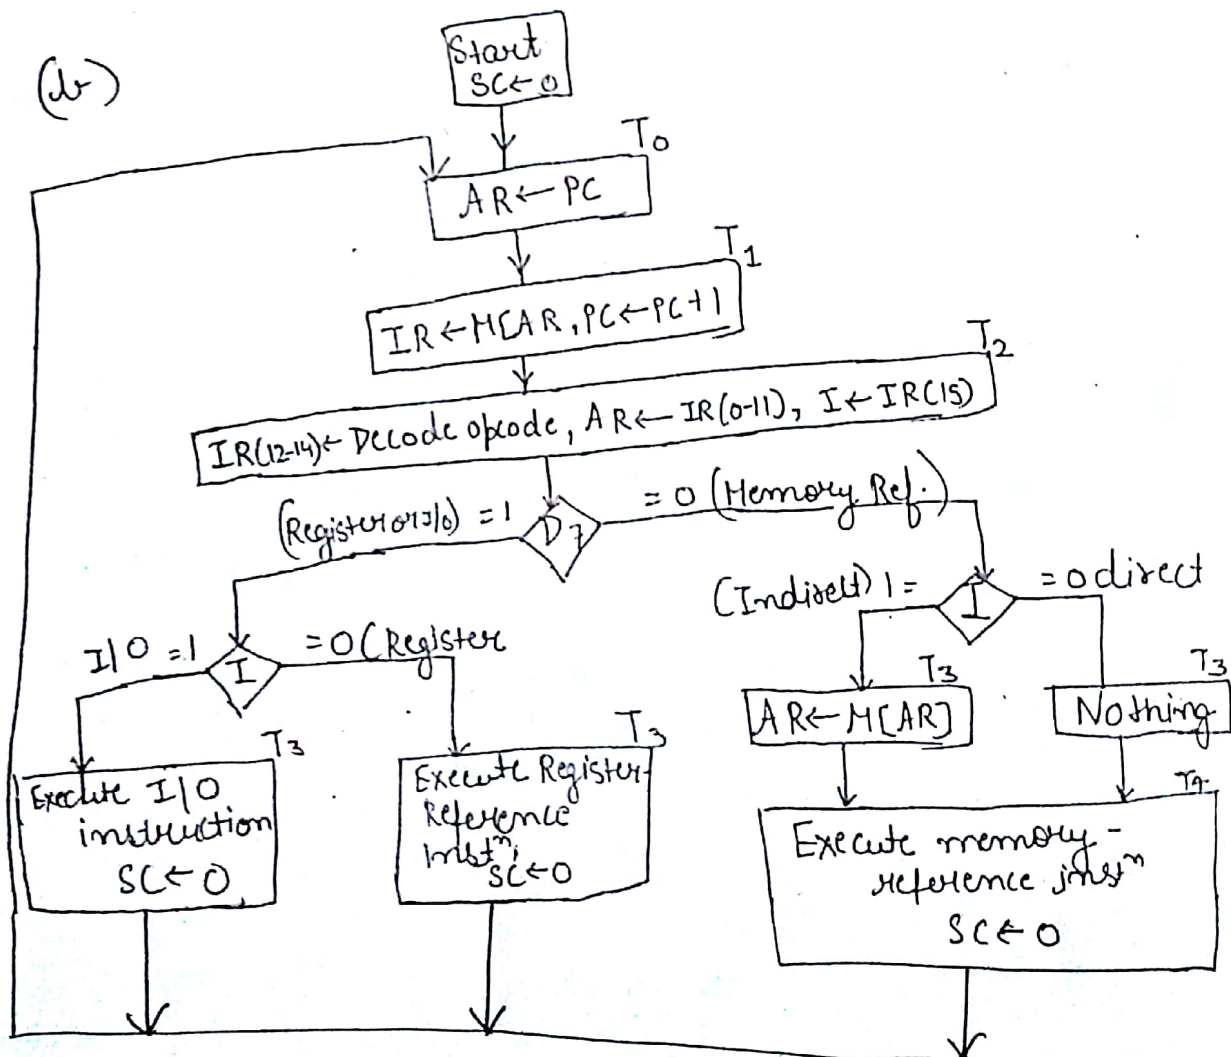 (b)
Start
SC ← 0
T0
AR ← PC
T1
IR ← M[AR, PC ← PC+1
T2
IR(12-14) ← Decode opcode, AR ← IR(0-11), I ← IR(15)
(Register or I/O) = 1
D7
= 0 (Memory Ref.)
(Indirect) 1 =
I
= 0 direct
I/O = 1
I
= 0 (Register
T3
AR ← M[AR]
T3
Nothing
T3
Execute I/O
instruction
SC ← 0
T3
Execute Register-
Reference
instⁿ,
SC ← 0
T4
Execute memory-
reference instⁿ
SC ← 0